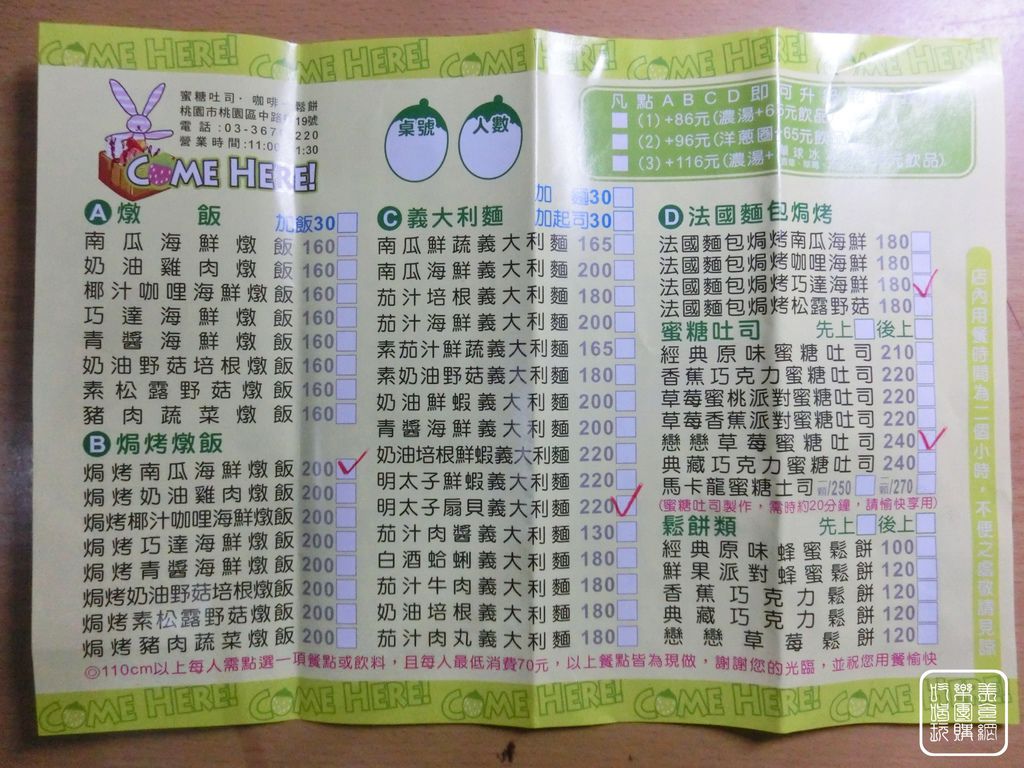 COME HERE!
蜜糖吐司‧咖啡‧鬆餅
桃園市桃園區中路 19號
電話:03-367 220
營業時間:11:00 1:30
COME HERE!
桌號
人數
凡點ABCD即可升
(1)+86元(濃湯+65元飲品
(2)+96元(洋蔥圈+65元飲
(3)+116元(濃湯+ 元飲品)
A 燉飯 加飯30
南瓜海鮮燉飯 160
奶油雞肉燉飯 160
椰汁咖哩海鮮燉飯 160
巧達海鮮燉飯 160
青醬海鮮燉飯 160
奶油野菇培根燉飯 160
素松露野菇燉飯 160
豬肉蔬菜燉飯 160
B 焗烤燉飯
焗烤南瓜海鮮燉飯 200
焗烤奶油雞肉燉飯 200
焗烤椰汁咖哩海鮮燉飯 200
焗烤巧達海鮮燉飯 200
焗烤青醬海鮮燉飯 200
焗烤奶油野菇培根燉飯 200
焗烤素松露野菇燉飯 200
焗烤豬肉蔬菜燉飯 200
加麵30
C 義大利麵 加起司30
南瓜鮮蔬義大利麵 165
南瓜海鮮義大利麵 200
茄汁培根義大利麵 180
茄汁海鮮義大利麵 200
素茄汁鮮蔬義大利麵 165
素奶油野菇義大利麵 180
奶油鮮蝦義大利麵 200
青醬海鮮義大利麵 200
奶油培根鮮蝦義大利麵 220
明太子鮮蝦義大利麵 220
明太子扇貝義大利麵 220
茄汁肉醬義大利麵 130
白酒蛤蜊義大利麵 180
茄汁牛肉義大利麵 180
奶油培根義大利麵 180
茄汁肉丸義大利麵 180
D 法國麵包焗烤
法國麵包焗烤南瓜海鮮 180
法國麵包焗烤咖哩海鮮 180
法國麵包焗烤巧達海鮮 180
法國麵包焗烤松露野菇 180
蜜糖吐司 先上 後上
經典原味蜜糖吐司 210
香蕉巧克力蜜糖吐司 220
草莓蜜桃派對蜜糖吐司 220
草莓香蕉派對蜜糖吐司 220
戀戀草莓蜜糖吐司 240
典藏巧克力蜜糖吐司 240
馬卡龍蜜糖土司 一顆/250 二顆/270
(蜜糖吐司製作,需時約20分鐘,請愉快享用)
鬆餅類 先上 後上
經典原味蜂蜜鬆餅 100
鮮果派對蜂蜜鬆餅 120
香蕉巧克力鬆餅 120
典藏巧克力鬆餅 120
戀戀草莓鬆餅 120
店內用餐時間為二個小時,不便之處敬請見諒
◎110cm以上每人需點選一項餐點或飲料,且每人最低消費70元,以上餐點皆為現做,謝謝您的光臨,並祝您用餐愉快
COME HERE!